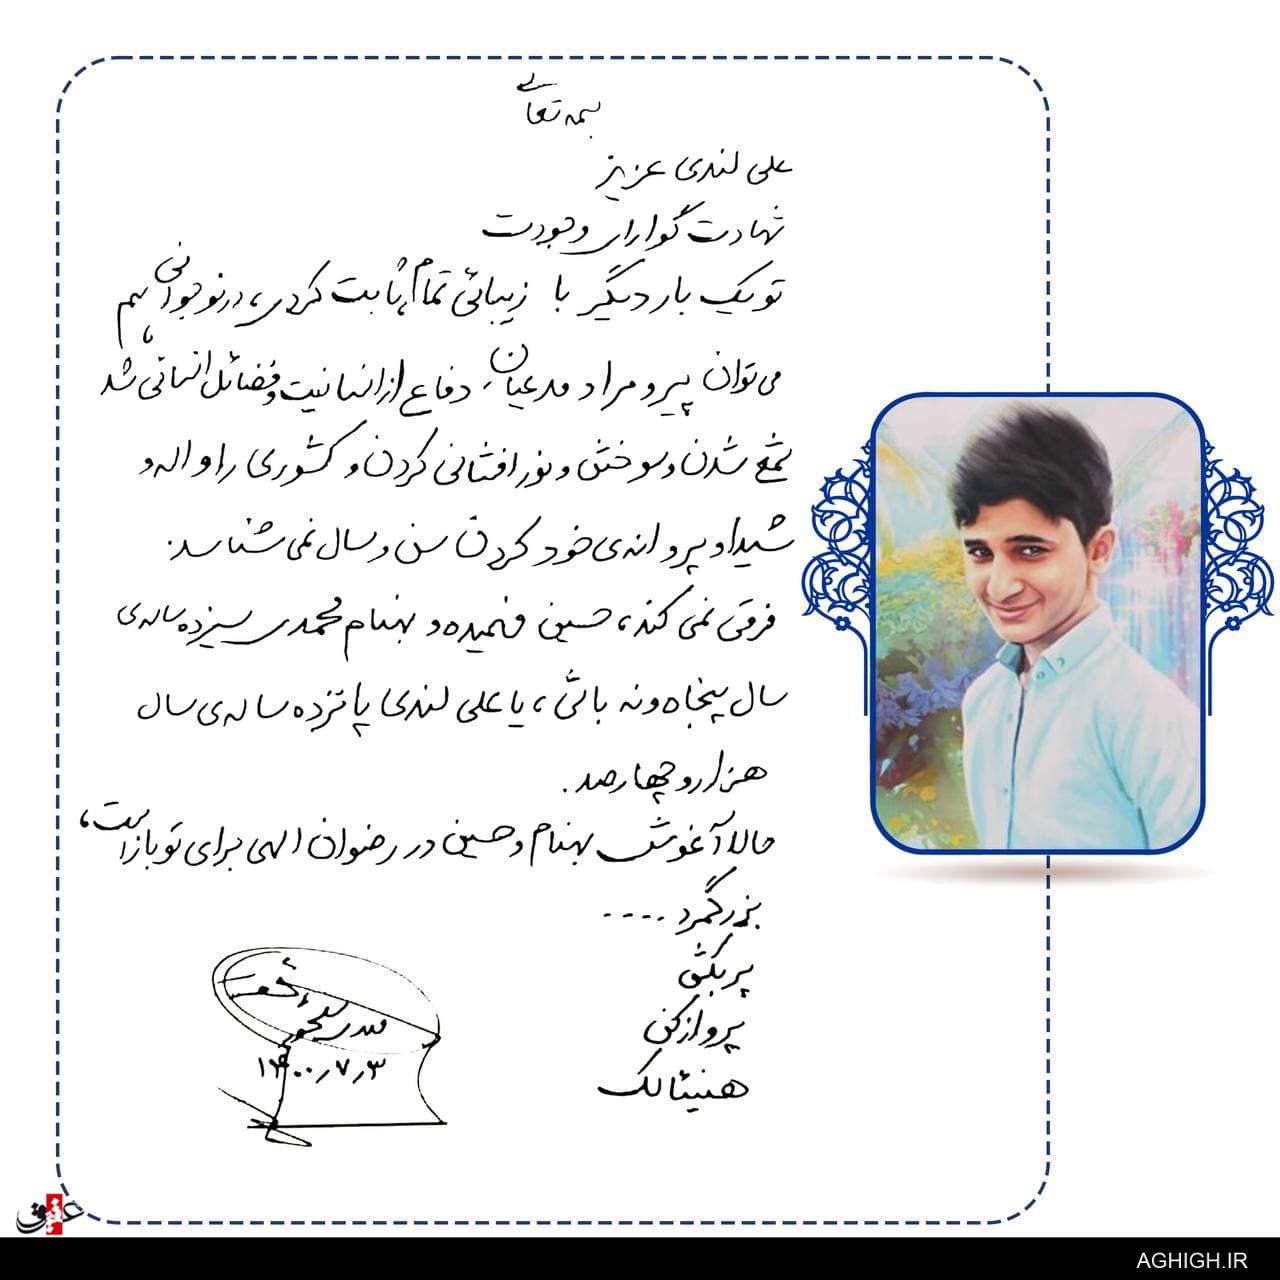 بسمه تعالی
علی لندی عزیز
شهادت گوارای وجودت
تو یک بار دیگر با زیبائی تمام ثابت کردی، در نوجوانی هم
می‌توان پیر و مراد مدعیان دفاع از انسانیت و فضائل انسانی شد
شمع شدن و سوختن و نور افشانی کردن و کشوری را واله و
شیدا و پروانه‌ی خود کردن سن و سال نمی شناسد.
فرقی نمی کند، حسین فهمیده و بهنام محمدی سیزده ساله‌ی
سال پنجاه و نه باشی، یا علی لندی پانزده ساله‌ی سال
هزار و چهارصد.
حالا آغوش بهنام و حسین در رضوان الهی برای تو باز است،
بزرگمرد ....
پر بکش
پرواز کن
هنیئا لک
۱۴۰۰٫۷٫۳
عقیق
AGHIGH.IR